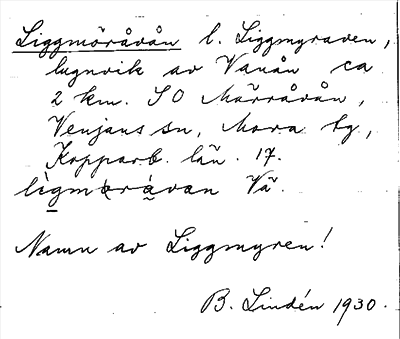 Liggmöråvån l. Liggmyraven,
lugnvik av Vanån ca
2 km. SO Märråvån,
Venjans sn, Mora tg,
Kopparb. län. 17.
lìgmøràvan Vå.
Namn av Liggmyren!
B. Lindén 1930.